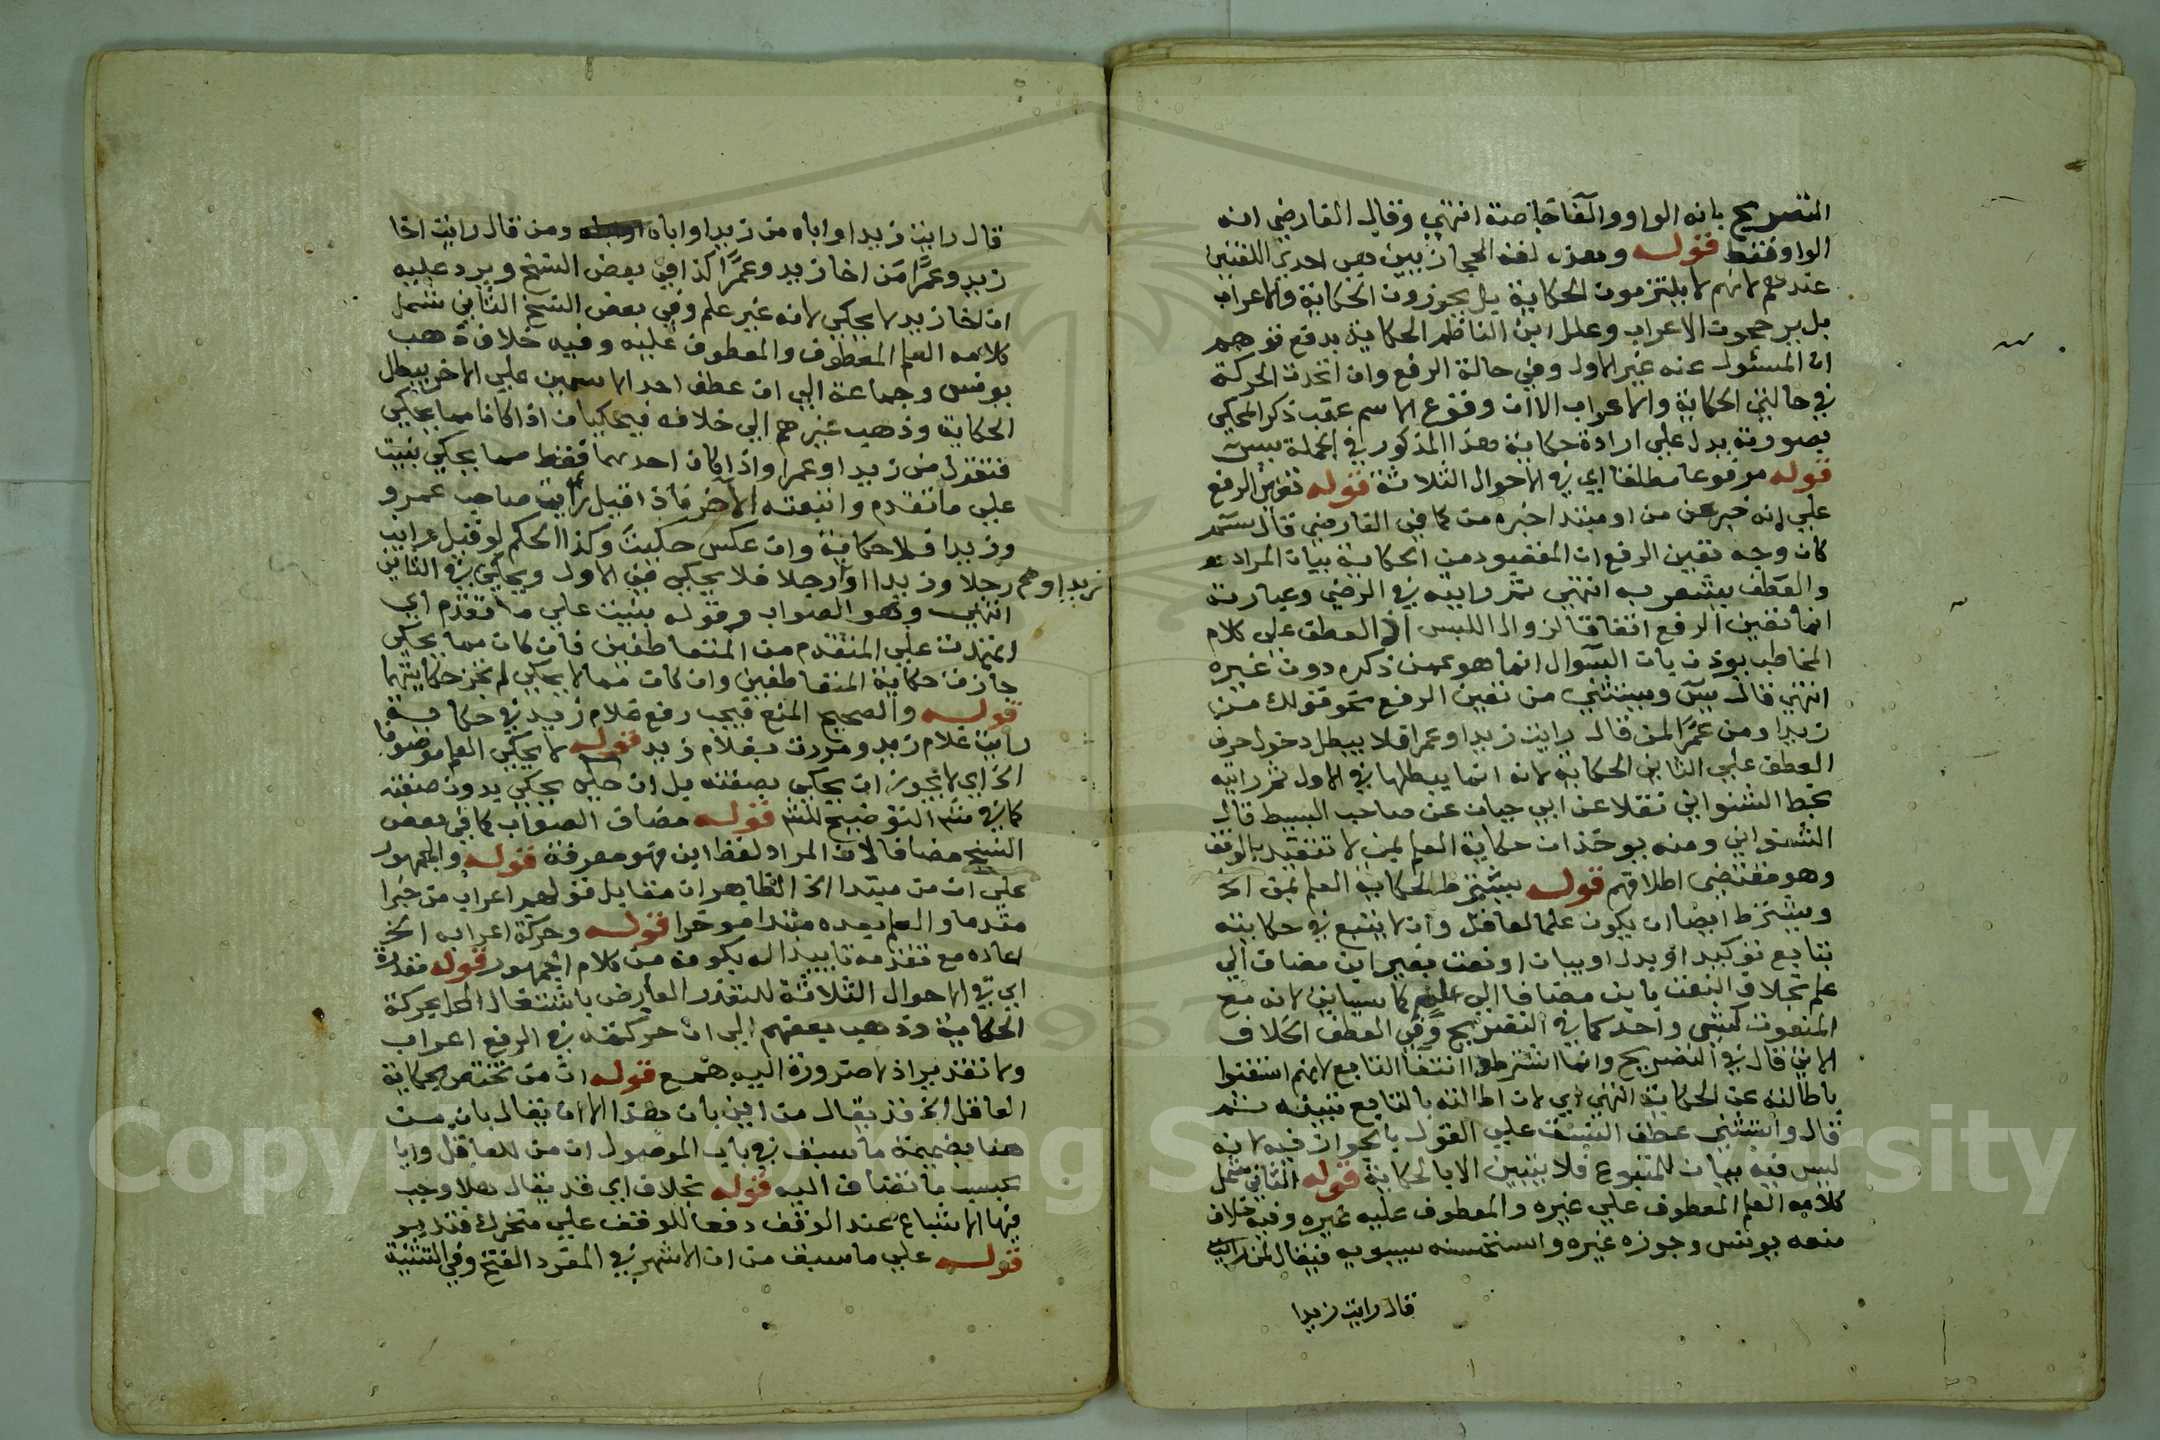 التصريح بانه الواو والفا خاصة انتهي وقال الفارضي انه
الواو فقط قوله وهذه لغة الحجازيين هي احدي اللغتين
عندهم لانهم لا يلتزمون الحكاية بل يجوزون الحكاية والاعراب
بل يرجحون الاعراب وعلل ابن الناظم الحكاية بدفع توهم
ان المسئول عنه غير الاول وفي حالة الرفع وان اتحدت الحركة
في حالتي الحكاية والاعراب الا ان وقوع الاسم عقب ذكر المحكي
بصورته يدل علي ارادة حكاية هذا المذكور في الجملة يس
قوله مرفوعا مطلقا اي في الاحوال الثلاثة قوله تعين الرفع
علي انه خبر عن من او مبتدا خبره من كما في الفارضي قال سم
كان وجه تعين الرفع ان المقصود من الحكاية بيان المراد
والعطف يشعر به انتهي ثم رايته في الرضي وعبارته
انما تعين الرفع اتفاقا لزوال اللبس اذ العطف علي كلام
المخاطب يوذن بان السوال انما هو عمن ذكره دون غيره
انتهي قال يس ويستثني من تعين الرفع نحو قولك من
زيدا ومن عمرا لمن قال رايت زيدا وعمرا فلا يبطل دخول حرف
العطف علي الثاني الحكاية لانه انما يبطلها في الاول ثم رايته
بخط الشنواني نقلا عن ابي حيان عن صاحب البسيط قال
الشنواني ومنه يوخذ ان حكاية العلم بمن لا تتقيد بالوقف
وهو مقتضي اطلاقهم قوله يشترط لحكاية العلم بمن الخ
ويشترط ايضا ان يكون علما لعاقل وان لا يتبع في حكايته
بتابع توكيد او بدل او بيان او نعت بغير ابن مضاف الي
علم بخلاف النعت بابن مضافا الي علم كما سياتي لانه مع
المنعوت كشي واحد كما في التصريح وفي العطف الخلاف
الاتي قال في التصريح وانما اشترطوا انتفا التابع لانهم استغنوا
باطالته عن الحكاية انتهي اي لان اطالته بالتابع تبينه ثم
قال واستثني عطف النسق علي القول بالجواز فيه لانه
ليس فيه بيان للمتبوع فلا يتبين الا بالحكاية قوله الثاني شمل
كلامه العلم المعطوف علي غيره والمعطوف عليه غيره وفيه خلاف
منعه يونس وجوزه غيره واستحسنه سيبويه فيقال لمن رايت
قال رايت زيدا
قال رايت زيدا واباه من زيدا واباه ومن قال رايت اخا
زيد وعمرا من اخا زيد وعمرا كذا في بعض النسخ ويرد عليه
ان اخا زيد لا يحكي لانه غير علم وفي بعض النسخ الثاني شمل
كلامه العلم المعطوف والمعطوف عليه وفيه خلاف ذهب
يونس وجماعة الي ان عطف احد الاسمين علي الاخر يبطل
الحكاية وذهب غيرهم الي خلافه فيحكيان اذا كانا مما يحكي
فتقول من زيدا وعمرا واذا كان احدهما فقط مما يحكي بنيت
علي ما تقدم واتبعته الاخر فاذا قيل رايت صاحب عمرو
وزيدا فلا حكاية وان عكس حكيت وكذا الحكم لو قيل رايت
زيدا ورجلا وزيدا او رجلا فلا يحكي في الاول ويحكي في الثاني
انتهي وهو الصواب وقوله بنيت علي ما تقدم اي
اعتمدت علي المتقدم من المتعاطفين فان كان مما يحكي
جازت حكاية المتعاطفين وان كان مما لا يحكي لم تجز حكايتهما
قوله والصحيح المنع فيجب رفع غلام زيد في حكاية
رايت غلام زيد ومررت بغلام زيد قوله لا يحكي العلم موصوفا
الخ اي لا يجوز ان يحكي بصفته بل ان حكي يحكي بدون صفته
كما في متن التوضيح للش قوله مضاف الصواب كما في بعض
النسخ مضافا لان المراد لفظ ابن فهو معرفة قوله والجمهور
علي ان من مبتدا الخ الظاهر ان مقابل قولهم اعراب من خبرا
مقدما والعلم بعده مبتدا موخرا قوله وحركة اعرابه الخ
اعاده مع تقدمه تاييدا له بكونه من كلام الجمهور قوله مقدرة
اي في الاحوال الثلاثة للتعذر العارض باشتغال المحل بحركة
الحكاية وذهب بعضهم الي ان حركته في الرفع اعراب
ولا تقدير اذ لا ضرورة اليه همع قوله ان من تختص بحكاية
العاقل الخ قد يقال من اين بان هذا الا ان يقال بان من
هنا بضميمة ما سبق في باب الموصول ان من للعاقل وايا
بحسب ما تضاف اليه قوله بخلاف اي قد يقال هلا وجب
فيها الاشباع عند الوقف دفعا للوقف علي متحرك فتدبر
قوله علي ما سبق من ان الاشهر في المفرد الفتح وفي التثنية